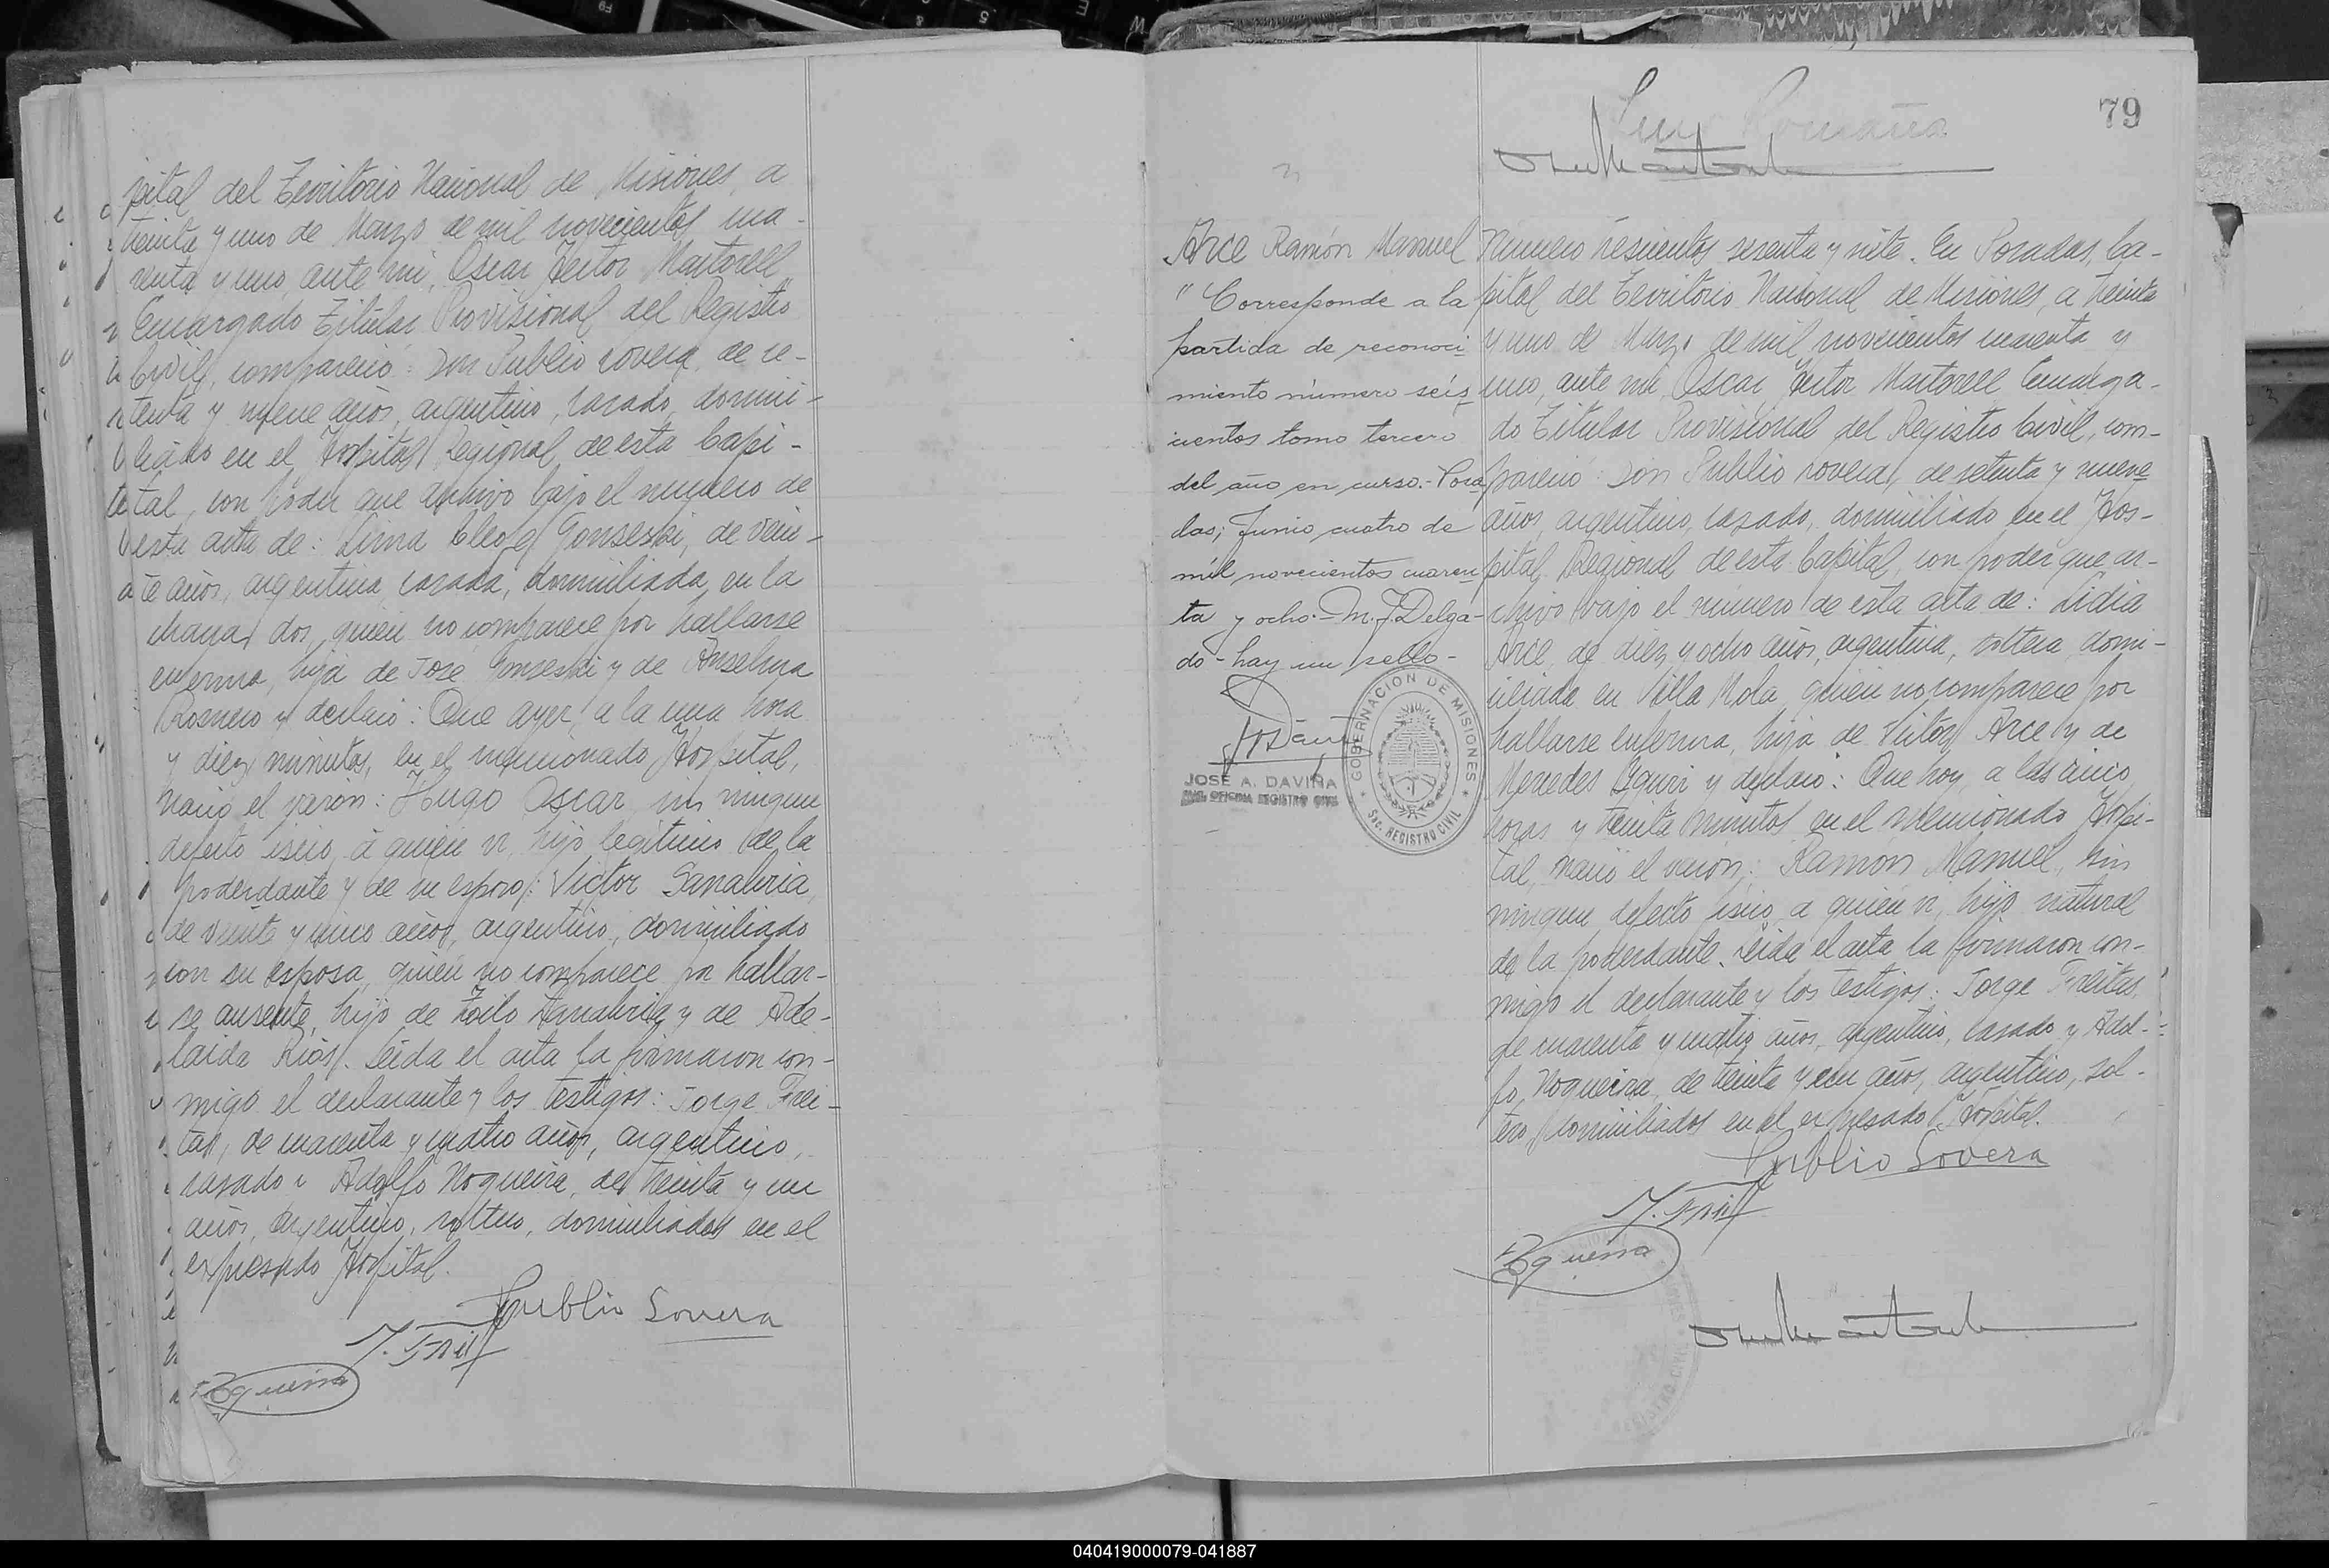 pital del Territorio Nacional de Misiones, a
treinta y uno de Marzo de mil novecientos cua-
renta y uno, ante mí, Oscar Hector Martorell
Encargado Titular Provisional del Registro
Civil, compareció: Don Publio Lovera, de se-
tenta y nueve años, argentino, casado, domici-
liado en el Hospital Regional de esta Capi-
tal, con poder que archivo bajo el número de
esta acta de: Lima Gonseski, de vein-
te años, argentina, casada, domiciliada en la
chacra dos, quien no comparece por hallarse
enferma, hija de José Gonseski y de Anselma
Romero y declaró: Que ayer, a la una hora
y diez minutos, en el mencionado Hospital,
nació el varón: Hugo Oscar, sin ningun
defecto físico, a quien vi, hijo legítimo de la
poderdante y de su esposo: Victor Sanabria,
de veinte y cinco años, argentino, domiciliado
con su esposa, quien no comparece por hallar-
se ausente, hijo de Zoilo Sanabria y de Ade-
laida Ríos. Leida el acta la firmaron con-
migo el declarante y los testigos: Jorge Frei-
tas, de cuarenta y cuatro años, argentino,
casado y Adolfo Noqueira, de treinta y un
años, argentino, soltero, domiciliados en el
expresado Hospital.
Publio Lovera
79
Arce Ramón Manuel
"Corresponde a la
partida de reconoci
miento número seis
cientos tomo tercero
del año en curso.- Posa
das; Junio cuatro de
mil novecientos cuaren
ta y ocho.- M. J. Delga-
do - hay un sello -
JOSE A. DAVIÑA
OFICINA REGISTRO CIVIL
GOBERNACION DE MISIONES
Sec. REGISTRO CIVIL
Número trescientos sesenta y siete. En Posadas, Ca-
pital del Territorio Nacional de Misiones, a treinta
y uno de Marzo de mil novecientos cuarenta y
uno, ante mí, Oscar Hector Martorell Encarga-
do Titular Provisional del Registro Civil, com-
pareció: Don Publio Lovera, de setenta y nueve
años, argentino, casado, domiciliado en el Hos-
pital Regional de esta Capital, con poder que ar-
chivo bajo el número de esta acta de: Lidia
Arce, de diez y ocho años, argentina, soltera, domi-
ciliada en Villa Mola, quien no comparece por
hallarse enferma, hija de Victor Arce y de
Mercedes y declaró: Que hoy, a las cinco
horas y treinta minutos en el mencionado Hospi-
tal, nació el varón: Ramón Manuel, sin
ningun defecto físico, a quien vi, hijo natural
de la poderdante. Leida el acta la firmaron con-
migo el declarante y los testigos: Jorge Freitas,
de cuarenta y cuatro años, argentino, casado y Adol-
fo Noqueira, de treinta y un años, argentino, sol-
tero, domiciliados en el expresado Hospital.
Publio Lovera
040419000079-041887